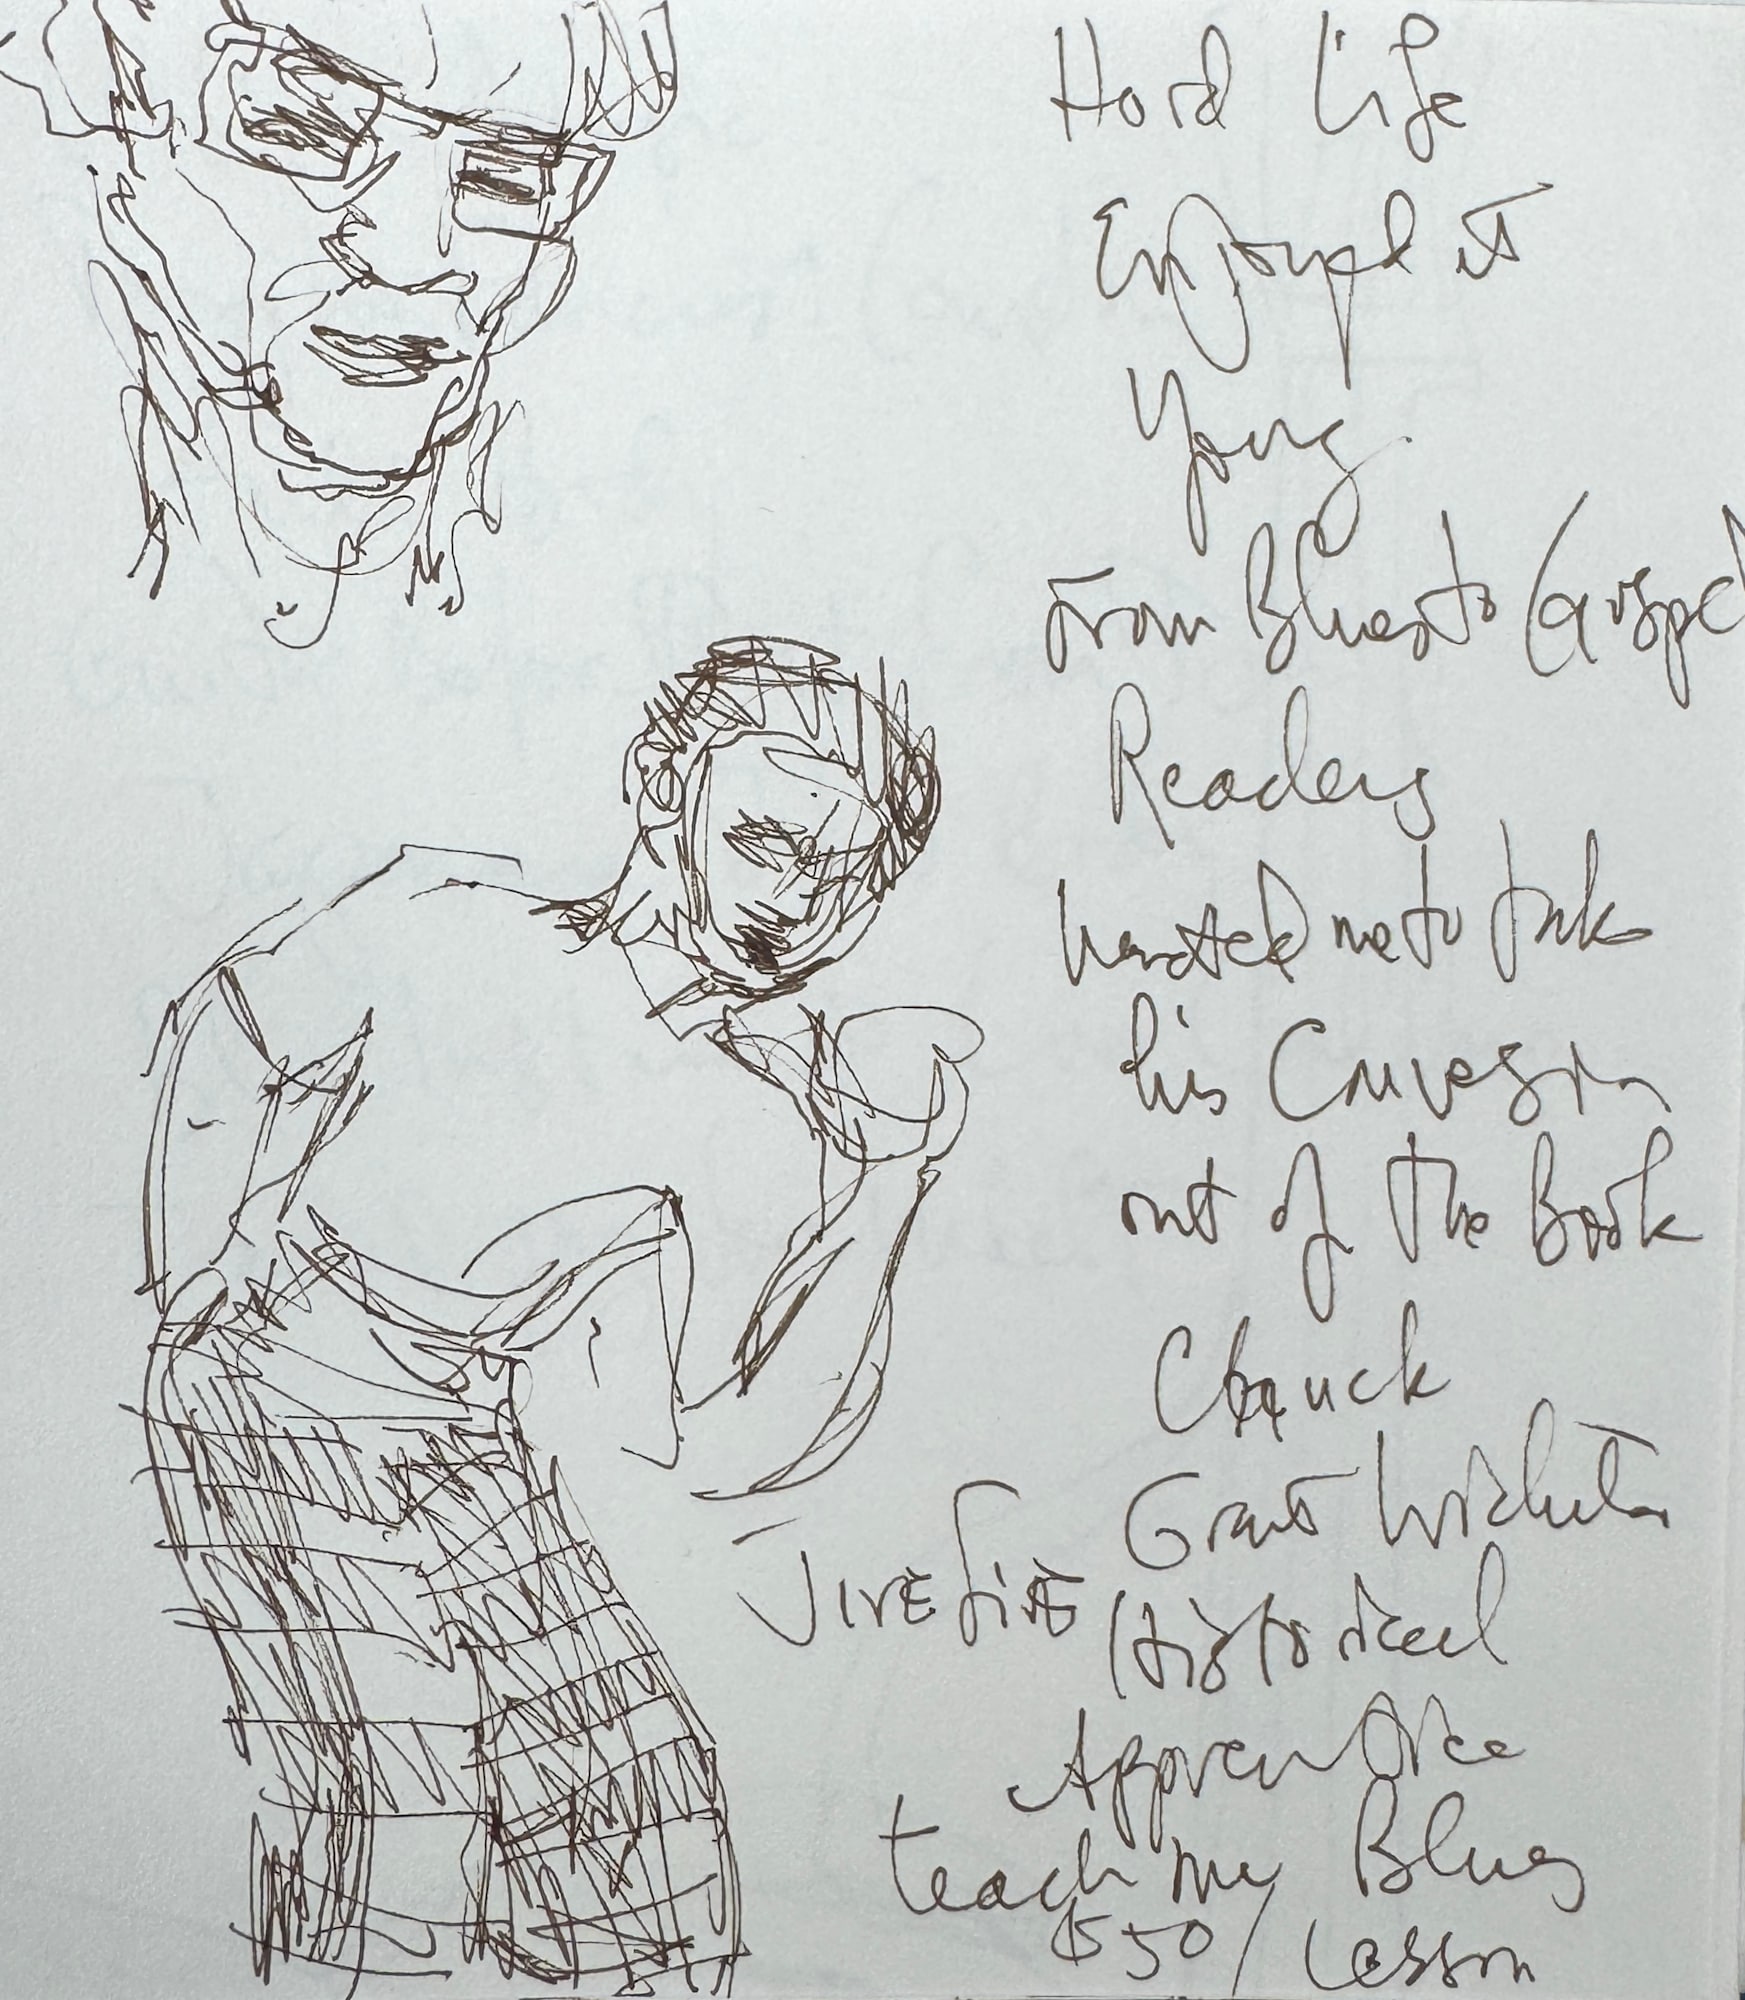 Hard Life
Enjoyed it
Young
From Blues to Gospel
Readers
wanted me to take
his Conversion
out of the Book
Chuck
Grant Wichita
Jive Five Historical
Apprentice
teach my Blues
$50/Lesson